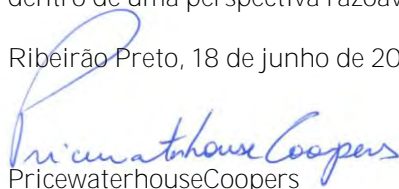 dentro de uma perspectiva razoáv
Ribeirão Preto, 18 de junho de 20
PricewaterhouseCoopers
PricewaterhouseCoopers